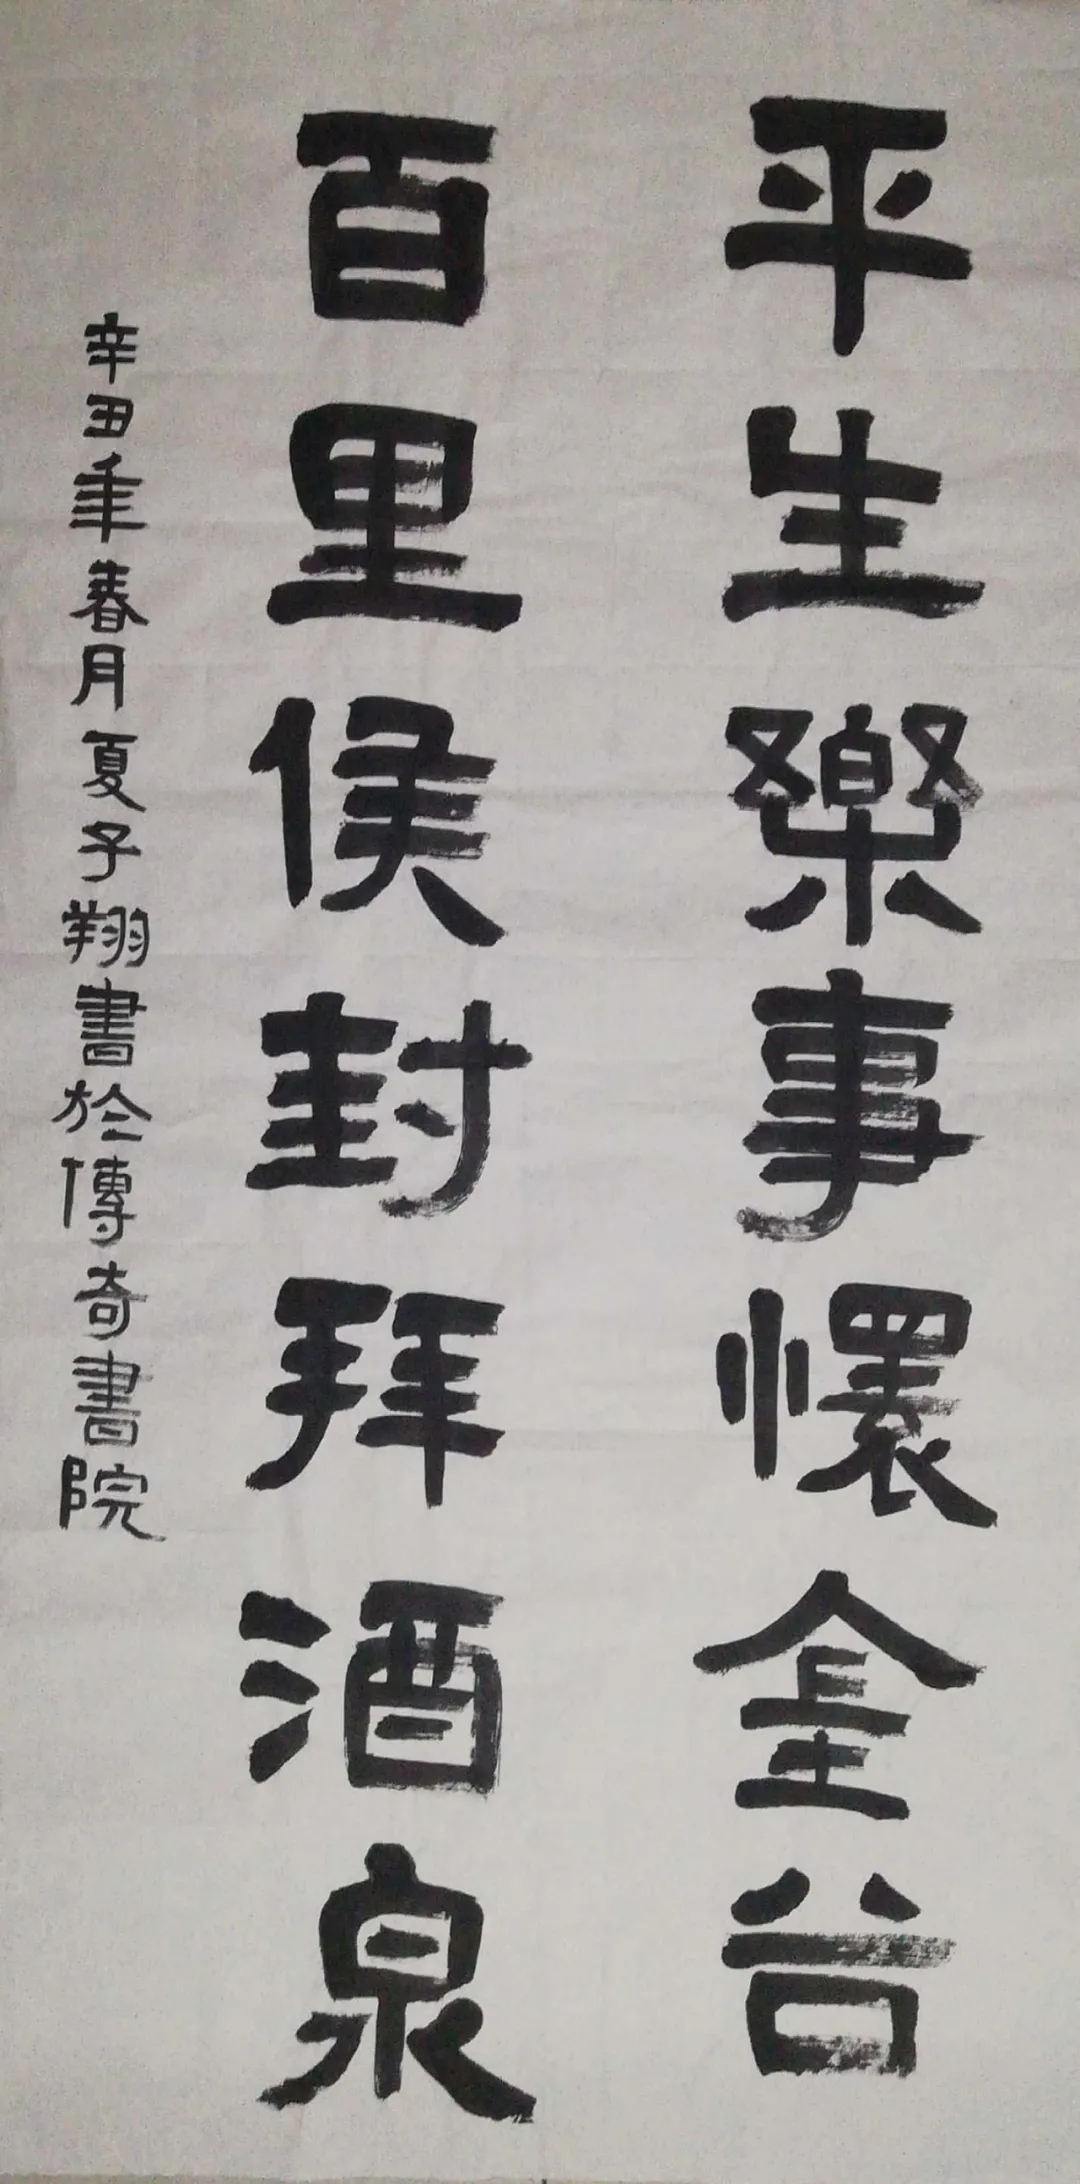 平生樂事懷金台
百里侯封拜酒泉
辛丑年春月夏子翔書於傳奇書院